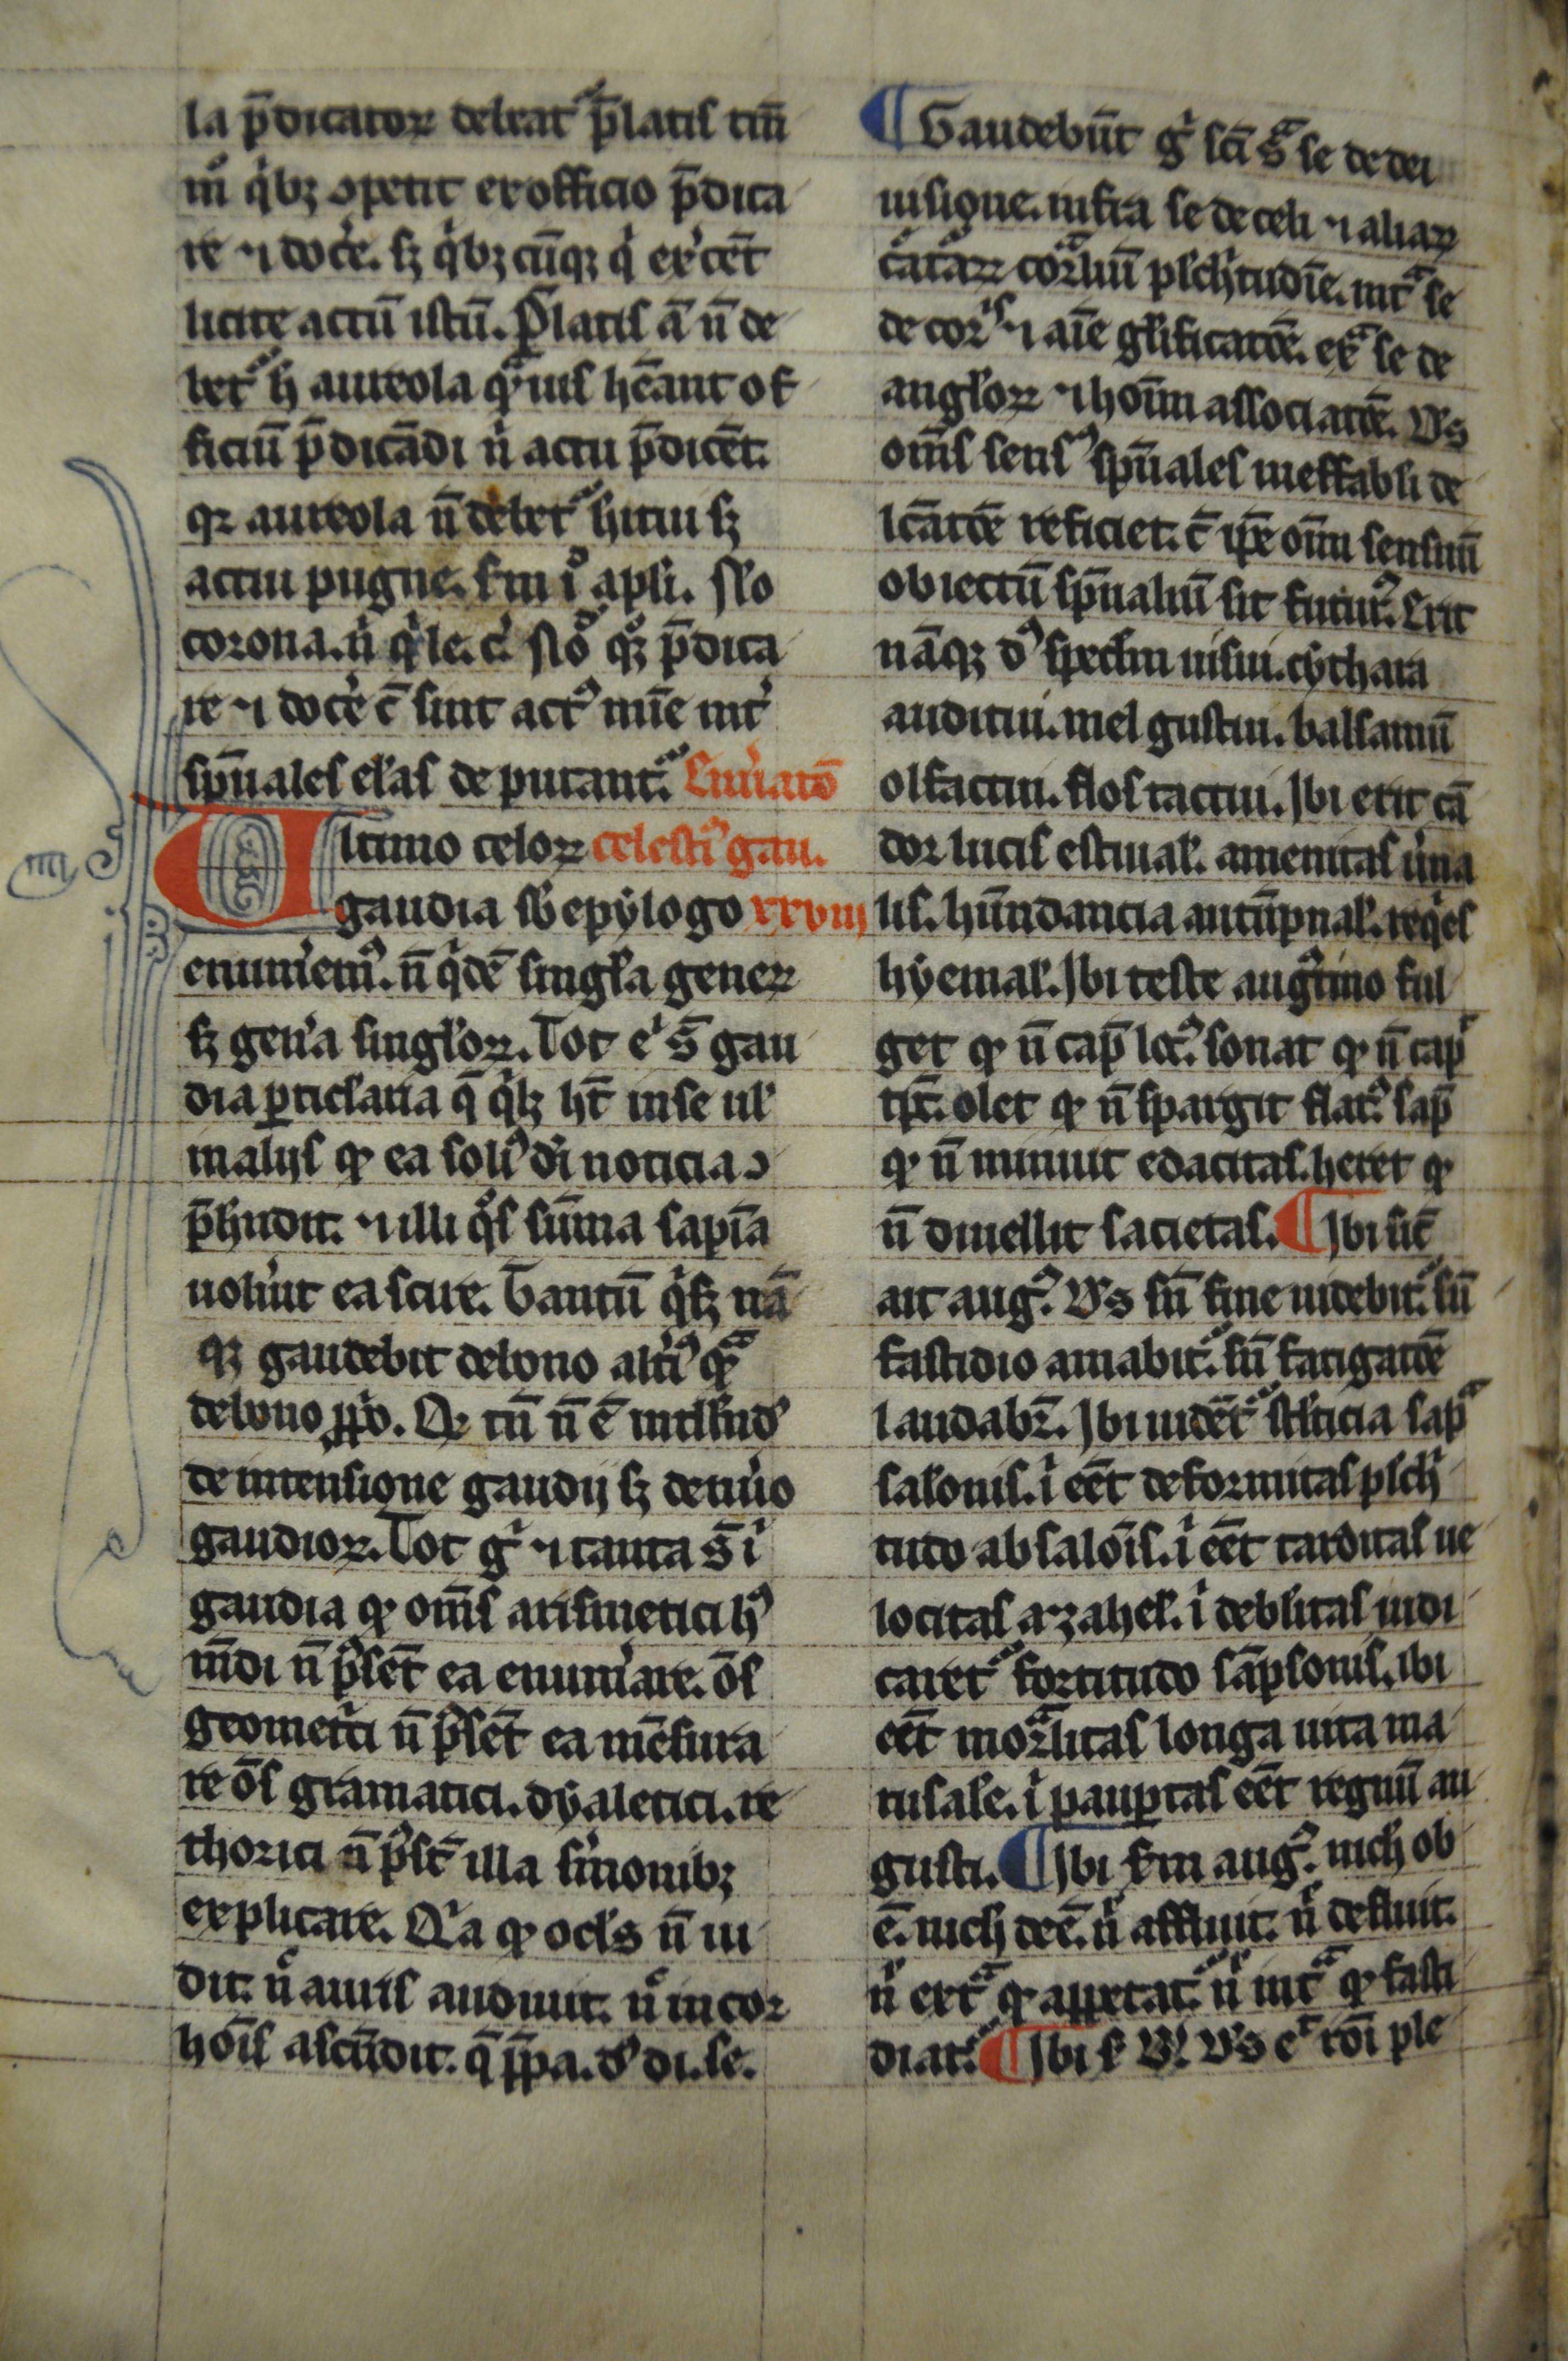 la p̄dicatoꝝ debeat᷑ p̄latis tm̄
m͛ qͥbꝫ ꝯpetit ex officio p̄dica
re ⁊ doce͛. sꝫ qͥbꝫcūqꝫ qͥ ex͛cēt
licite actū istū. P̄latis aū n̄ de
bet᷑ h̄ aureola qͣmuis hēant of
ficiū p̄dicādi nͥ actu p̄dicēt.
qꝛ aureola n̄ debet᷑ hitui sꝫ
actui pugne. sm̄ iͦ apłi. Nō
corona. nͥ qͥ le. c͛. Nō qꝫ p̄dica
re ⁊ doce͛ c̄ sint actꝰ mīe int͛
spūales el̓as deputant᷑. Enu͛atō
Ultimo celoꝝ celestiꝰ gau.
gaudia sb̓ epylogo xxviii
enum͛emꝰ. n̄ qͥdē singl̓a geneꝝ
sꝫ gen͛a singl̓oꝝ. Tot e͛ s̄ gau
dia ꝑticl̓aria q̄ qͥlꝫ ht̄ in se ul̓
in aliis ꝙ ea solꝰ di noticia ꝯ
p̄hendit. ⁊ illi qͦs sūma sapīa
uolu͛it ea scire. Tantū qͥlꝫ nā
qꝫ gaudebit de bono alt͛iꝰ qͣ
de bono ꝓpͥo. Qꝛ tn̄ n̄ ē intll̓nd̓
de intensione gaudii sꝫ de nu͛o
gaudioꝝ. Tot gͥ ⁊ tanta s̄ iͥ
gaudia ꝙ om̄s arismetici hꝰ
mūdi n̄ pͦsēt ea enum͛are. ōs
geomet͛ci n̄ pͦsēt ea mēsura
re ōs gramatici. dyaletici. re
thorici n̄ pͦst̄ illa s͛monibꝫ
explicare. Qͥa ꝙ ocl̓s n̄ ui
dit. nͨ auris audiuit. nͨ in cor
hoīs ascēdit. q̄ p̄pa. d̓s di. se.
¶ Gaudebūt gͥ scī sͣ se de dei
uisione. infra se de celi ⁊ aliaꝝ
c͛atͣaꝝ corꝑaliū plc̓htudīe. intͣ se
de corꝑis ⁊ aīe gl̓ificatōe. exͣ se de
angl̓oꝝ ⁊ hoīm associatōe. D̓s
om̄s sensꝰ spūales ineffabli de
lc̄atōe reficiet. c̄ ip̄e oīm sensuū
obiectū spūaliū sit futurꝰ. Erit
nāqꝫ d̓s specl̓m uisui. cythara
auditui. mel gustui. balsamū
olfactui. flos tactui. Ibi erit cā
dor lucis estiual̓. amenitas u͛na
lis. hūndancia autūpnal̓. reqͥes
hyemal̓. Ibi teste augꝰtino ful
get ꝙ n̄ cap̄ locꝰ. sonat ꝙ n̄ capͥ
tp̄c. olet ꝙ n̄ spargit flatꝰ. sap̄
ꝙ n̄ minuit edacitas. heret ꝙ
n̄ diuellit sacietas. ¶ Ibi sic̄
ait augꝰ. D̓s sn̄ fine uidebit᷑. sn̄
fastidio amabit᷑. sn̄ fatigatōe
laudabr̄. Ibi uidēt᷑ stl̓ticia sapͣ
salonis. iͥ eēt deformitas plc̓h
tudo absalōis. iͥ eēt tarditas ue
locitas azahel. iͥ debl̓itas iudi
caret᷑ fortitudo sāpsonis. ibi
eēt mortͣlitas longa uita ma
tusale. iͥ pauꝑtas eēt regnū au
gusti. ¶ Ibi sm̄ augꝰ. nich̓ ob
ē. nich̓ deē. nͨ affluit. nͨ defluit.
nͨ extͣ ꝙ appetat᷑. nͨ intͣ ꝙ fasti
diat᷑. ¶ Ibi s̄ B͛. D̓s e͛ rōi ple